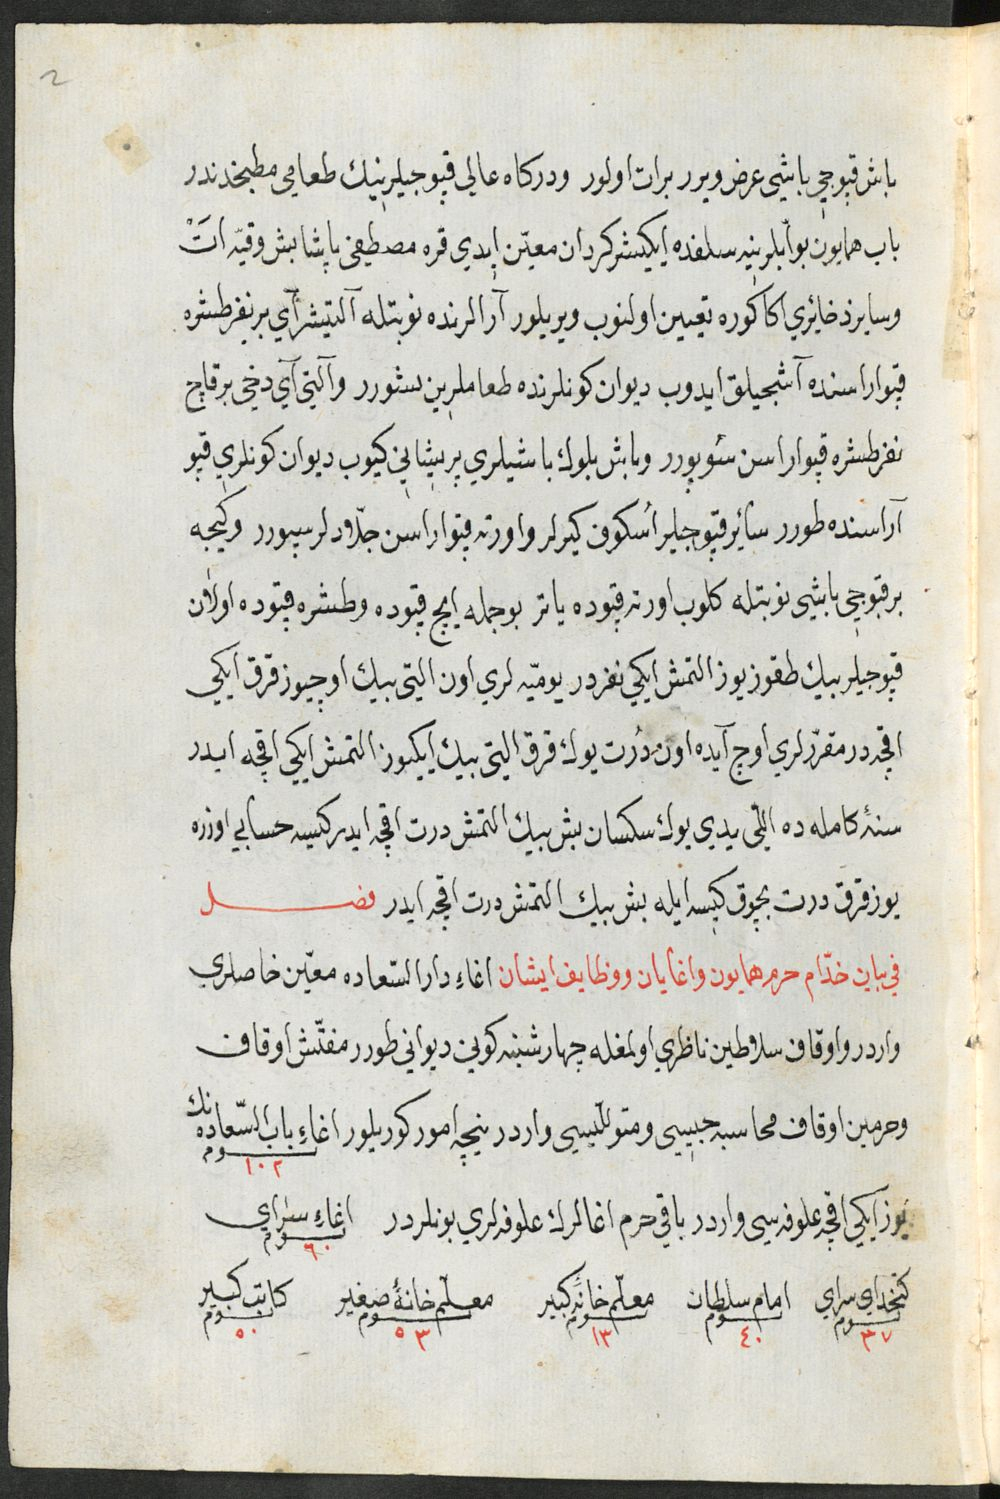 2
باش قپوجی باشی عرض ویرر برات اولور ودرکاه عالی قپوجیلرینیڭ طعامی مطبخدندر
باب همایون بوابلرینه سلفده ایکیشر کردان معیّن ایدی قره مصطفی پاشا بش وقیّه اتْ
وسایر ذخائری اکا کوره تعیین اولنوب ویریلور آرالرنده نوبتله آلتیشر آی بر نفر طشره
قپو اراسنده آشجیلق ایدوب دیوان کونلرنده طعاملرین پشورر وآلتی آی دخی بر قاچ
نفر طشره قپو اراسن سُوپورر وباش بلوك باشیلری پریشانی کیوب دیوان کونلری قپو
آراسنده طورر سائر قپوجیلر اُسکوف کیرلر واورته قپو اراسن جلّادلر سپورر وکیجه
بر قپوجی باشی نوبتله کلوب اورته قپوده یاتر بو جمله ایچ قپوده وطشره قپوده اولان
قپوجیلر بیڭ طقوز یوز التمش ایکی نفردر یومیّه لری اون التی بیڭ اوچیوز قرق ایکی
اقچه در مقرّرلری اوچ آیده اون دُرت یوك قرق التی بیڭ ایکیوز التمش ایکی اقچه ایدر
سنهٔ کامله ده اللی یدی یوك سکسان بش بیڭ التمش درت اقچه ایدر کیسه حسابی اوزره
یوز قرق درت بچوق کیسه ایله بش بیڭ التمش درت اقچه ایدر فصل
فی بیان خدّام حرم همایون واغایان ووظایف ایشان اغاءِ دار السّعاده معیّن خاصلری
واردر واوقاف سلاطین ناظری اولمغله چهارشنبه کونی دیوانی طورر مفتّش اوقاف
وحرمین اوقاف محاسبه جیسی ومتولّیسی واردر نیچه امور کوریلور اغاءِ باب السّعاده نك
یوم ١٠٢
یوز ایکی اقچه علوفه سی واردر باقی حرم اغالرك علوفه لری بونلردر اغاءِ سرای
یوم ٦٠
کتخدای سرای امام سلطان معلّم خانهٔ کبیر معلّم خانهٔ صغیر کاتب کبیر
یوم ٣٧ یوم ٤٠ یوم ١٣ یوم ٥٣ یوم ٥٠